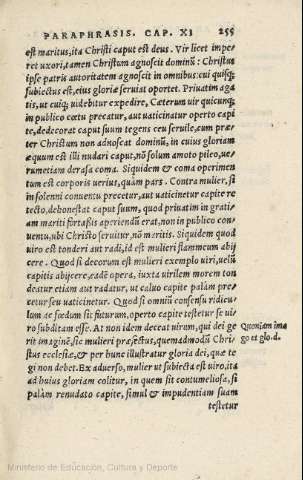 PARAPHRASIS. CAP. XI 255
est maritus, ita Christi caput est deus. Vir licet impe⸗
ret uxori, tamen Christum agnoscit dominū: Christus
ipse patris autoritatem agnoscit in omnibus: cui quisq;
subiectus est, eius gloriæ seruiat oportet. Priuatim aga
tis, ut cuiq; uidebitur expedire, Cæterum uir quicunq;
in publico cœtu precatur, aut uaticinatur operto capi
te, dedecorat caput suum tegens ceu seruile, cum præ
ter Christum non adnoscat dominū, in cuius gloriam
æquum est illi nudari caput, nō solum amoto pileo, ue⸗
rumetiam derasa coma. Siquidem & coma operimen
tum est corporis uerius, quàm pars. Contra mulier, si
in solenni conuentu precetur, aut uaticinetur capite re
tecto, dehonestat caput suum, quod priuatim in grati⸗
am mariti fortaßis aperiendū erat, non in publico con
uentu, ubi Christo seruitur, nō maritis. Siquidem quod
uiro est tonderi aut radi, id est mulieri flammeum abij
cere. Quod si decorum est mulieri exemplo uiri, uelū
capitis abijcere, eadē opera, iuxta uirilem morem ton
deatur etiam aut radatur, ut caluo capite palàm pre⸗
cetur seu uaticinetur. Quod si omniū consensu ridicu⸗
lum ac fœdum sit futurum, operto capite testetur se ui⸗
ro subditam esse. At non idem deceat uirum, qui dei ge
rit imaginē, sic mulieri præfectus, quemadmodū Chri⸗
stus ecclesiæ, & per hunc illustratur gloria dei, quæ te
gi non debet. Ex aduerso, mulier ut subiecta est uiro, ita
ad huius gloriam colitur, in quem sit contumeliosa, si
palàm renudato capite, simul & impudentiam suam
testetur
Quoniam ima
go et glo. d.
Ministerio de Educación, Cultura y Deporte